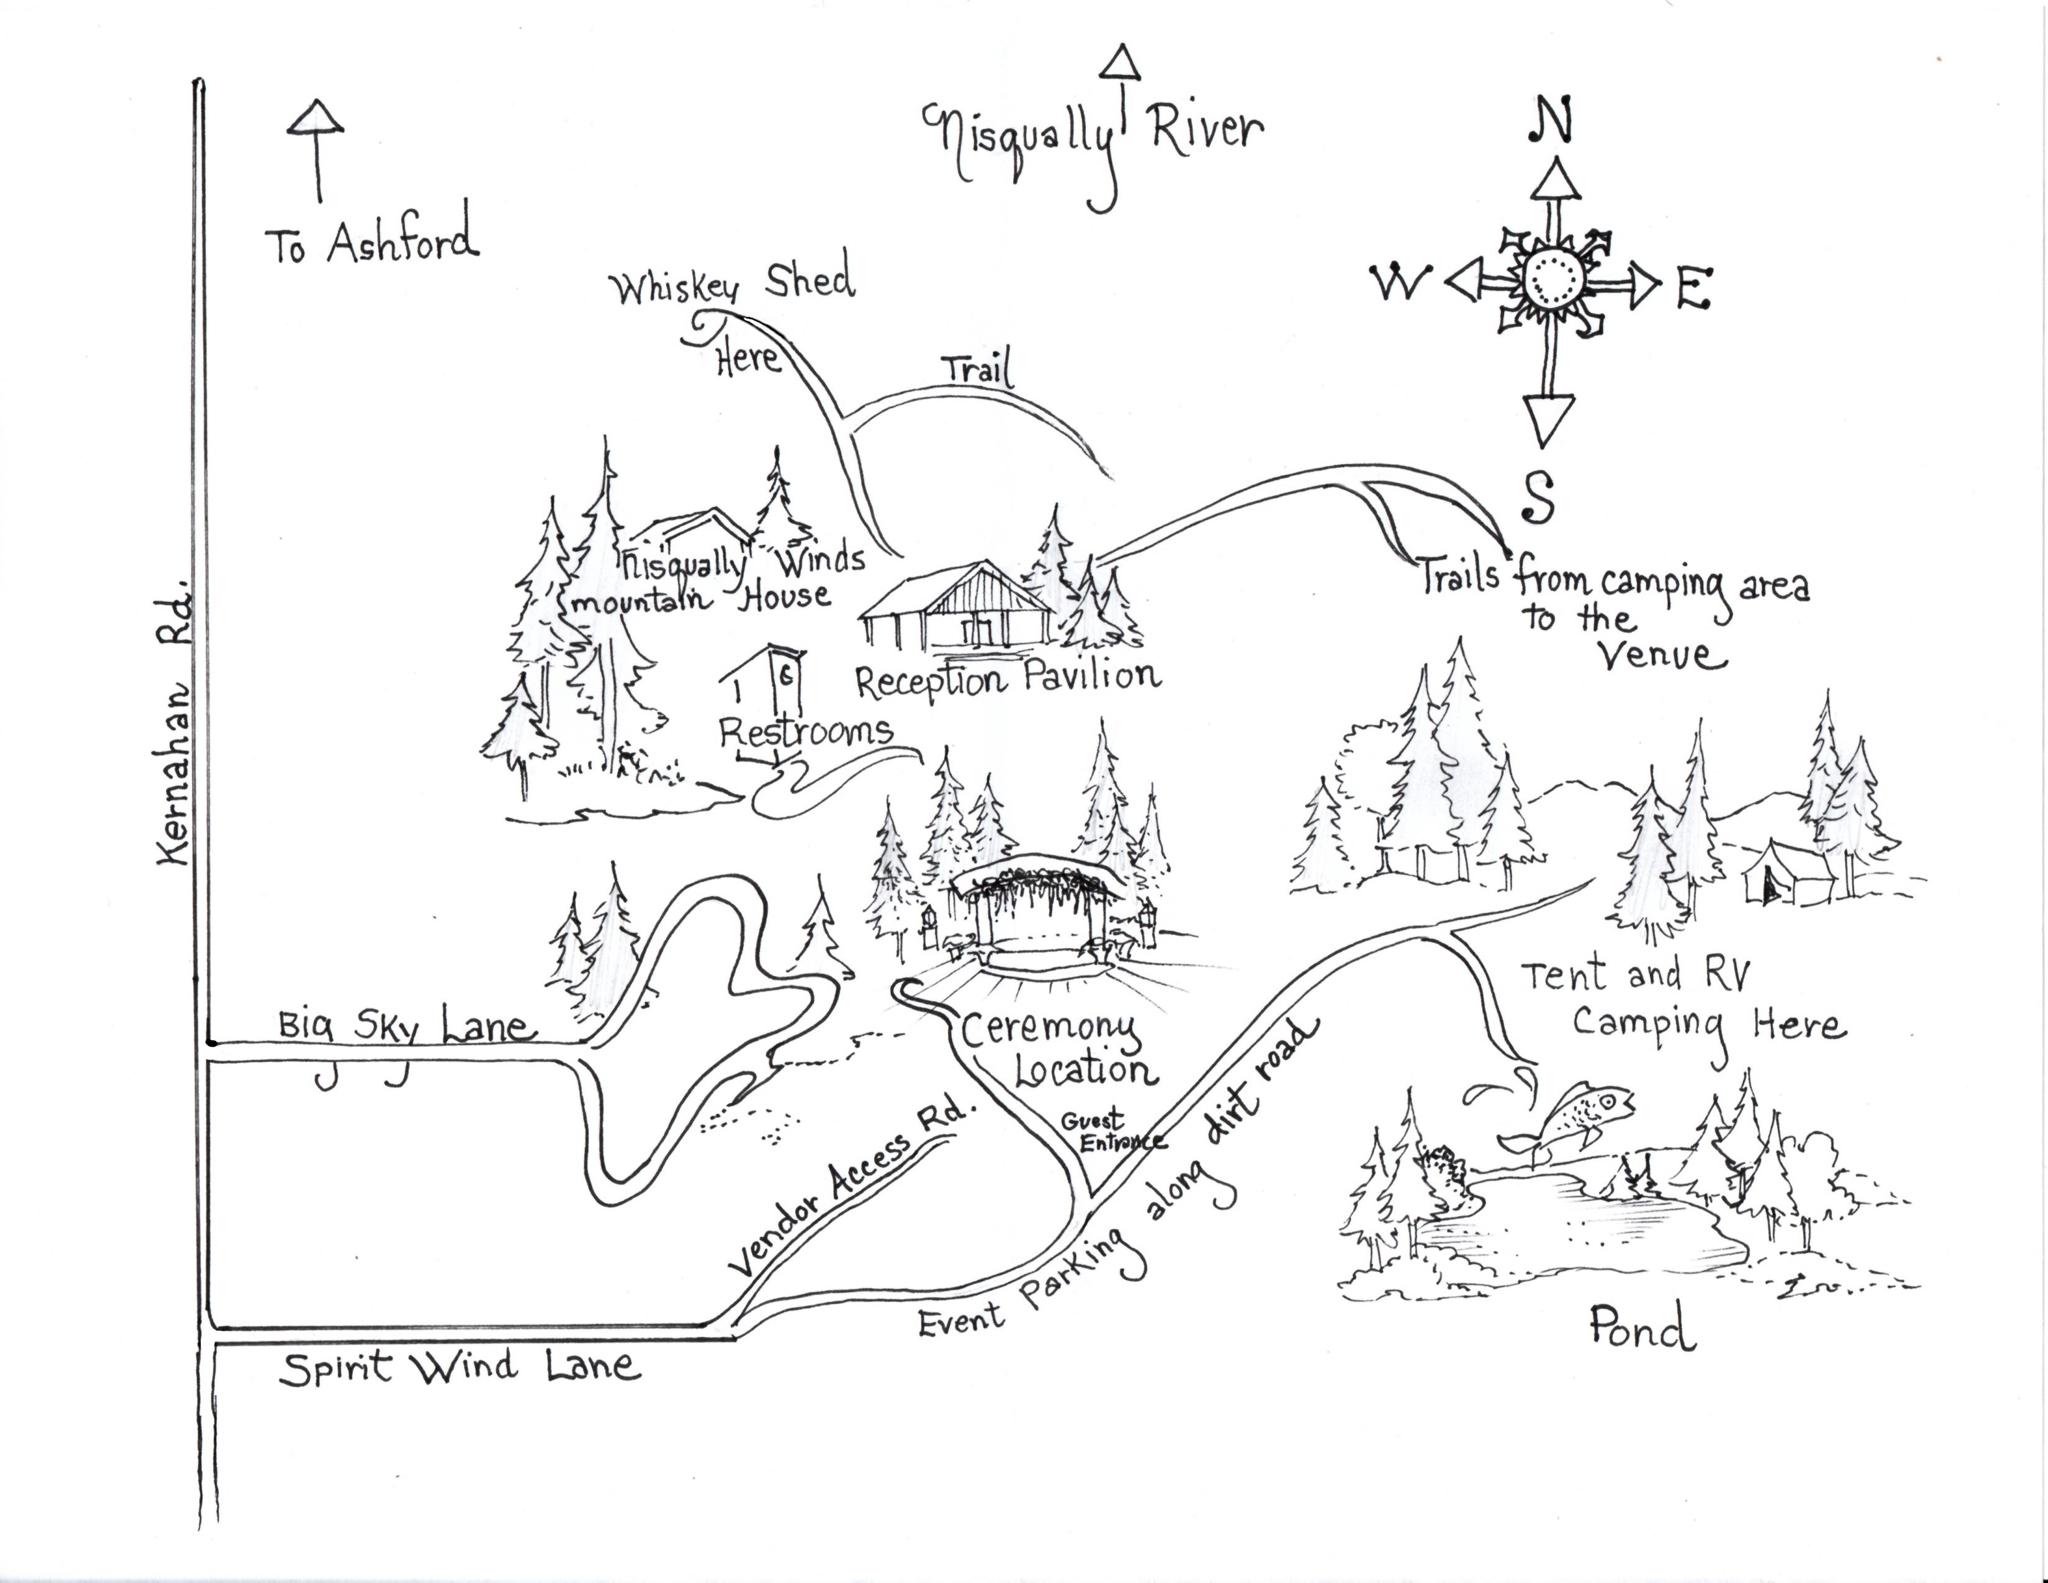 Nisqually River
N
To Ashford
W
E
Whiskey Shed
Here
Trail
S
Nisqually Winds
mountain House
Trails from camping area
to the
Venue
Kernahan Rd.
Reception Pavilion
Restrooms
Tent and RV
Camping Here
Big Sky Lane
Ceremony
Location
Guest
Entrance
Vendor Access Rd.
Event Parking along dirt road
Pond
Spirit Wind Lane